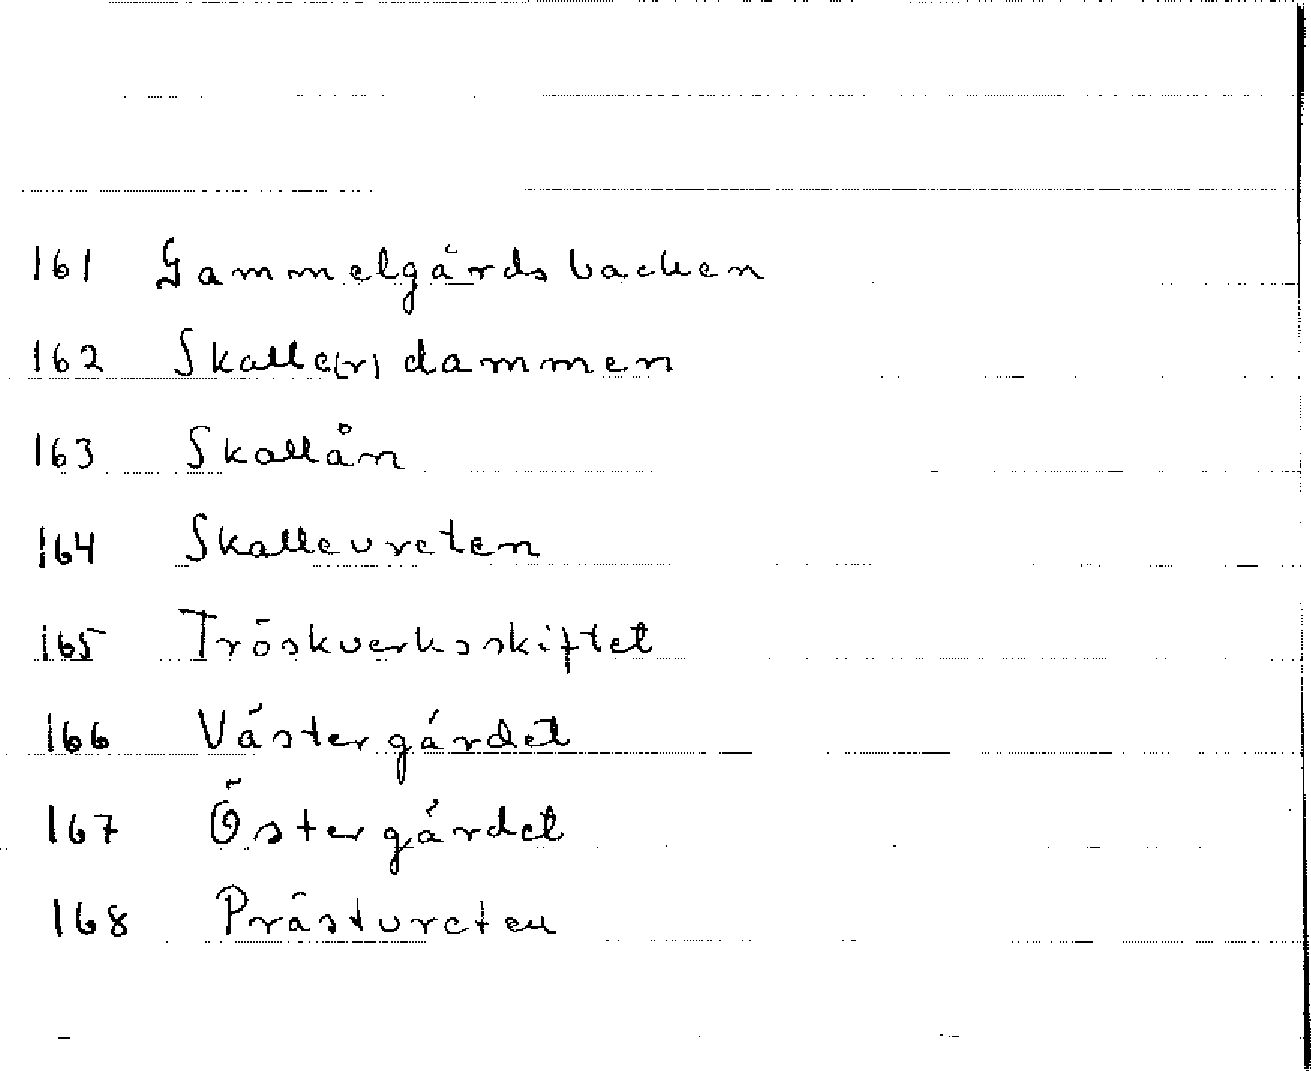 161 Gammelgårdsbacken
162 Skalle(r)dammen
163 Skallån
164 Skallevreten
165 Tröskverksskiftet
166 Västergärdet
167 Östergärdet
168 Prästvreten